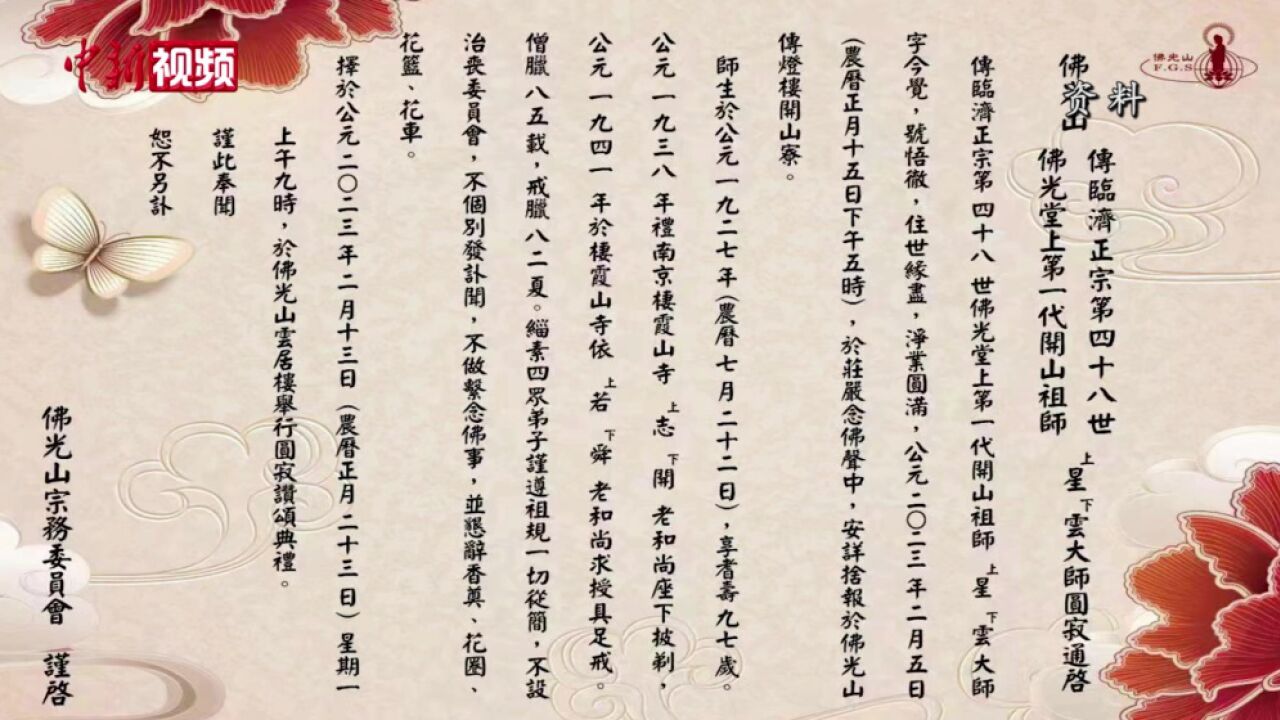 中新视频
佛光山
F.G.S
资料
佛 山
傳臨濟正宗第四十八世
佛光堂上第一代開山祖師
上星下雲大師圓寂通啓
傳臨濟正宗第四十八世佛光堂上第一代開山祖師 上星下雲大師
字今覺，號悟徹，住世緣盡，淨業圓滿，公元二〇二三年二月五日
(農曆正月十五日下午五時)，於莊嚴念佛聲中，安詳捨報於佛光山
傳燈樓開山寮。
師生於公元一九二七年(農曆七月二十二日)，享耆壽九七歲。
公元一九三八年禮南京棲霞山寺 上志下開 老和尚座下披剃，
公元一九四一年於棲霞山寺依 上若下舜 老和尚求授具足戒。
僧臘八五載，戒臘八二夏。緇素四眾弟子謹遵祖規一切從簡，不設
治喪委員會，不個別發訃聞，不做繫念佛事，並懇辭香奠、花圈、
花籃、花車。
擇於公元二〇二三年二月十三日(農曆正月二十三日)星期一
上午九時，於佛光山雲居樓舉行圓寂讚頌典禮。
謹此奉聞
恕不另訃
佛光山宗務委員會 謹啓